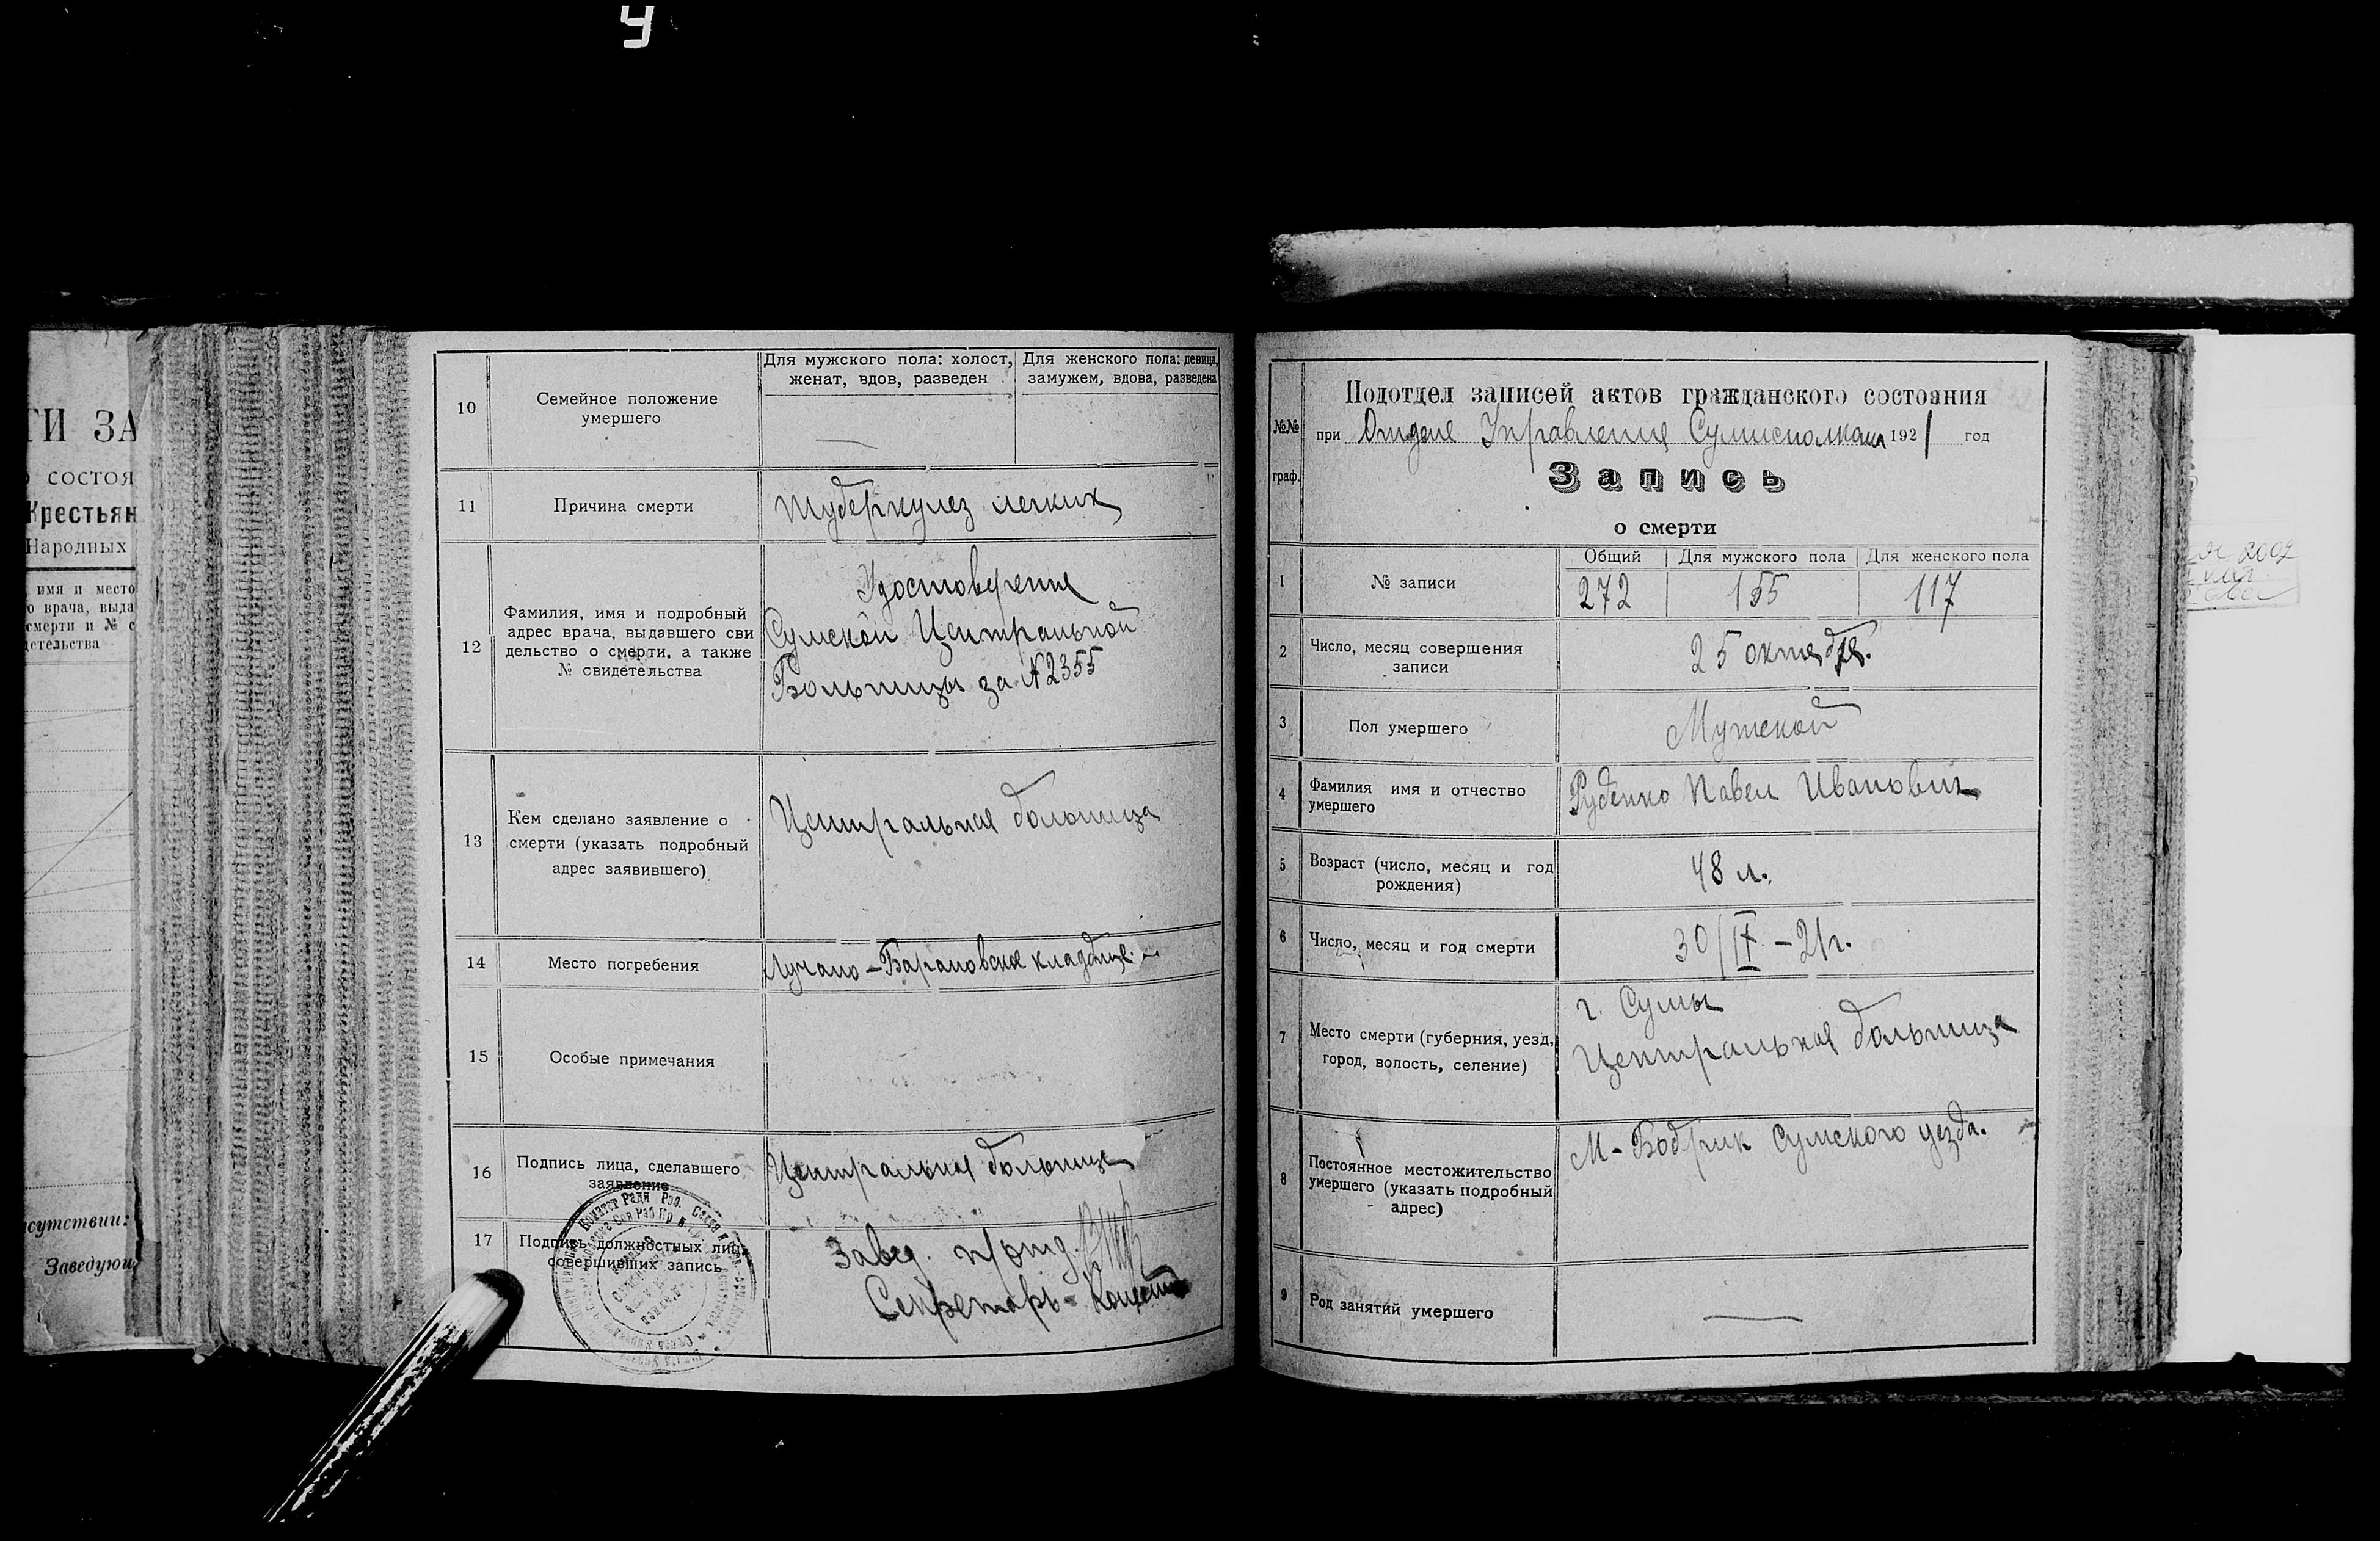 ТИ ЗА
состоя
Крестьян
Народных
имя и место
о врача, выда
смерти и № с
детельства
сутствии:
Заведую
10
Семейное положение
умершего
Для мужского пола: холост,
женат, вдов, разведен
Для женского пола: девица,
замужем, вдова, разведена
—
11
Причина смерти
туберкулез легких
12
Фамилия, имя и подробный
адрес врача, выдавшего сви
дельство о смерти, а также
№ свидетельства
Удостоверение
Сумской Центральной
Больницы за №2355
13
Кем сделано заявление о
смерти (указать подробный
адрес заявившего)
Центральная больница
14
Место погребения
Лучано-Барановское кладбище
15
Особые примечания
16
Подпись лица, сделавшего
заявление
Центральная больница
17
Подпись должностных лиц,
совершивших запись
Завед. п/отд.
Секретарь-
№№
граф.
Подотдел записей актов гражданского состояния
при Отделе Управления Сумисполкома 1921 год
Запись
о смерти
1
№ записи
Общий
Для мужского пола
Для женского пола
272
155
117
2
Число, месяц совершения
записи
25 октября.
3
Пол умершего
Мужской
4
Фамилия имя и отчество
умершего
Руденко Павел Иванович
5
Возраст (число, месяц и год
рождения)
48 л.
6
Число, месяц и год смерти
30/IX-21г.
7
Место смерти (губерния, уезд,
город, волость, селение)
г. Сумы
Центральная больница
8
Постоянное местожительство
умершего (указать подробный
адрес)
М-Бобрик Сумского уезда.
9
Род занятий умершего
—